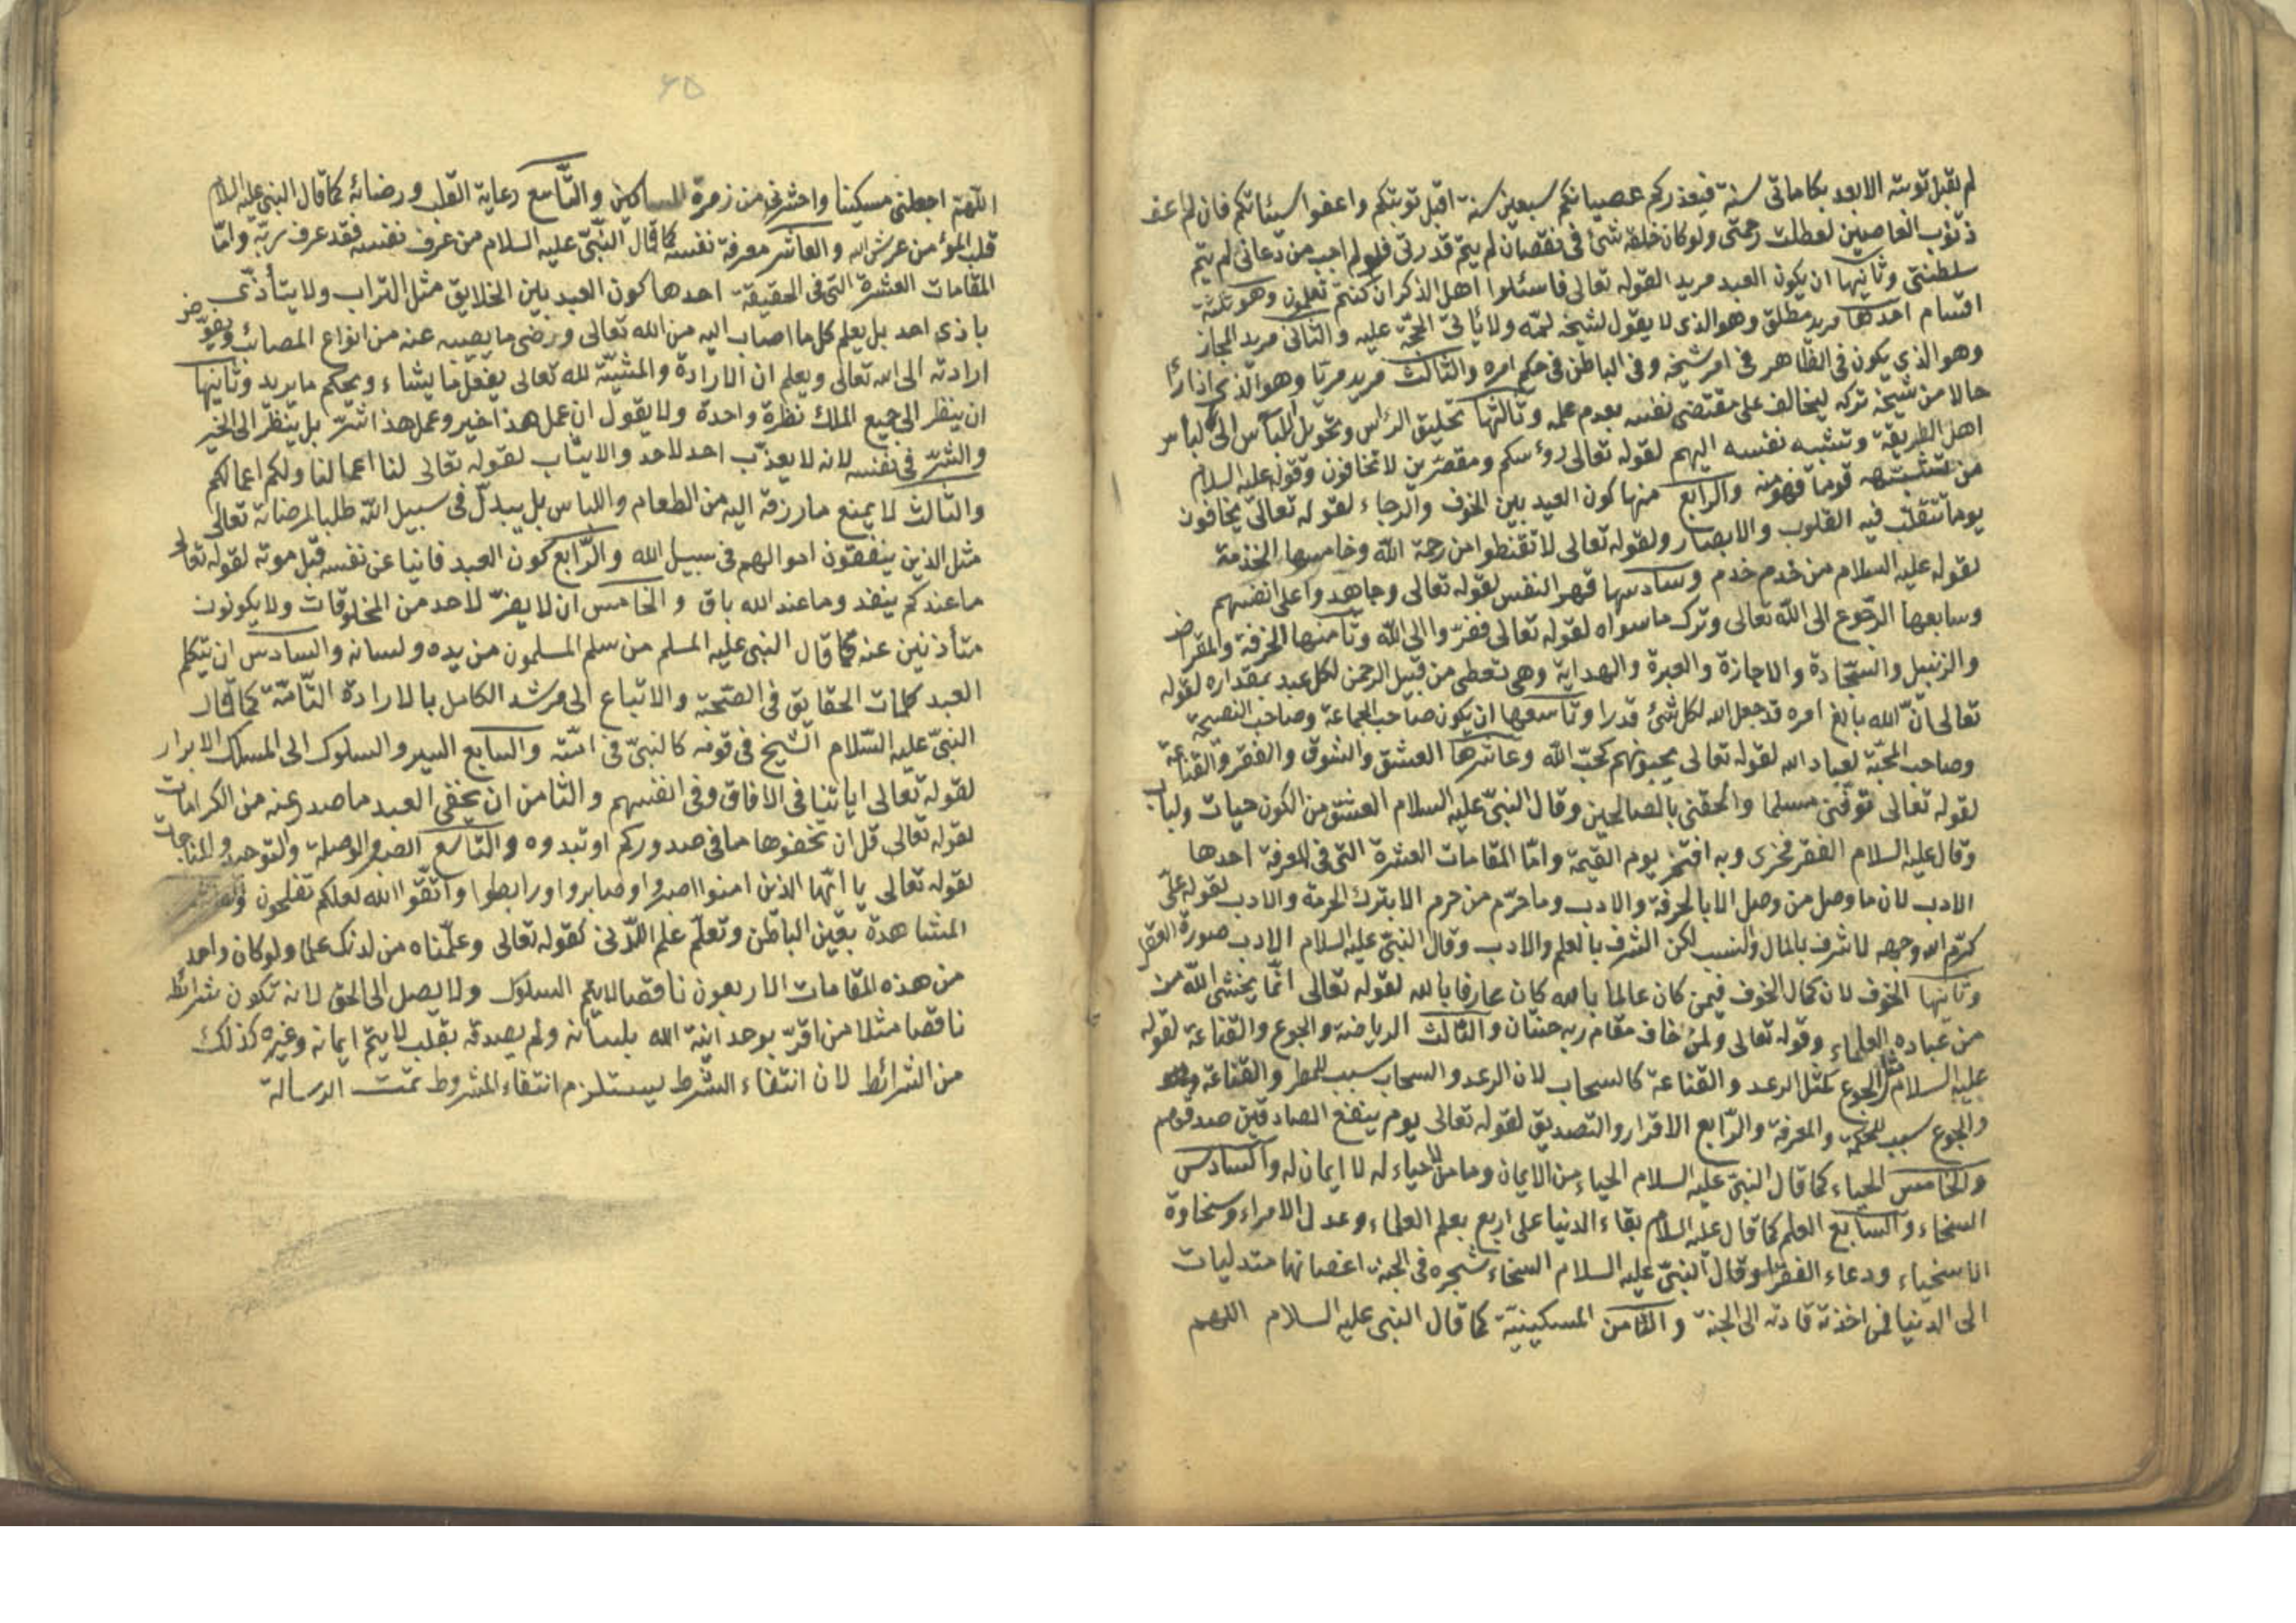 لم يقبل توبته الا بعد بكاء مأتى سنة فيعذركم عصيانكم سبعين سنة اقبل توبتكم واعفوا سيئاتكم فان لم اعف
ذنوب العاصين لعطلت رحمتى ولو كان خلقه شئ فى نقصان لم يتم قدرتى فلو لم اجب من دعانى لم يتم
سلطنتى وثانيها ان يكون العبد مريد القوله تعالى فاسئلوا اهل الذكر ان كنتم تعلمون وهو ثلثة
اقسام احدها مريد مطلق وهو الذى لا يقول لشيخه لمه ولا يأتى الحجة عليه والثانى مريد المجاز
وهو الذى يكون فى الظاهر فى امر شيخه وفى الباطن فى حكم امره والثالث مريد مرتا وهو الذى اذا رئا
حالا من شيخه تركه ليخالف على مقتضى نفسه بعدم عمله وثالثها تحليق الرأس وتحويل اللباس الى لباس
اهل الطريقة وتشبيه نفسه اليهم لقوله تعالى رؤسكم ومقصرين لا تخافون وقوله عليه السلام
من تشبه قوما فهو منه والرابع منها كون العبد بين الخوف والرجاء لقوله تعالى يخافون
يوما تتقلب فيه القلوب والابصار ولقوله تعالى لا تقنطوا من رحمة الله وخامسها الخدمة
لقوله عليه السلام من خدم خدم وسادسها قهر النفس لقوله تعالى وجاهدوا على انفسهم
وسابعها الرجوع الى الله تعالى وترك ما سواه لقوله تعالى ففروا الى الله وثامنها الخرقة والمقراض
والزنبيل والسجادة والاجازة والعبرة والهداية وهى تعطى من قبيل الرحمن لكل عبد بمقداره لقوله
تعالى ان الله بالغ امره قد جعل الله لكل شئ قدرا وتاسعها ان يكون صاحب الجماعة وصاحب النصيحة
وصاحب المحبة لعباد الله لقوله تعالى يحبونهم كحب الله وعاشرها العشق والشوق والفقر والقناعة
لقوله تعالى توفنى مسلما والحقنى بالصالحين وقال النبى عليه السلام العشق من الكون حيات ولباب
وقال عليه السلام الفقر فخرى وبه افتخر يوم القيمة واما المقامات العشرة التى فى المعرفة احدها
الادب لان ما وصل من وصل الا بالحرفة والادب وما حرم من حرم الا بترك الحرمة والادب لقوله على
كرم الله وجهه لا شرف بالمال والنسب لكن الشرف بالعلم والادب وقال النبى عليه السلام الادب صورة العقل
وثانيها الخوف لان كمال الخوف فيمن كان عالما بالله كان عارفا بالله لقوله تعالى انما يخشى الله من
من عباده العلماء وقوله تعالى ولمن خاف مقام ربه جنتان والثالث الرياضة والجوع والقناعة لقوله
عليه السلام مثل الجوع كمثل الرعد والقناعة كالسحاب لان الرعد والسحاب سبب للمطر والقناعة
والجوع سبب للحكمة والمعرفة والرابع الاقرار والتصديق لقوله تعالى يوم ينفع الصادقين صدقهم
والخامس الحياء كما قال النبى عليه السلام الحياء من الايمان وما من لا حياء له لا ايمان له والسادس
السخاء والسابع العلم كما قال عليه السلام بقاء الدنيا على اربع بعلم العلماء وعدل الامراء وسخاوة
الاسخياء ودعاء الفقرا وقال النبى عليه السلام السخاء شجره فى الجنة اغصانها متدليات
الى الدنيا فمن اخذته قادته الى الجنة والثامن المسكينية كما قال النبى عليه السلام اللهم
٤٥
اللهم اجعلنى مسكينا واحشرنى من زمرة المساكين والتاسع رعاية القلب ورضائه كما قال النبى عليه السلام
قلب المؤمن عرش الله والعاشر معرفة نفسه كما قال النبى عليه السلام من عرف نفسه فقد عرف ربه واما
المقامات العشرة التى فى الحقيقة احدها كون العبد بين الخلايق مثل التراب ولا يتأذى
باذى احد بل يعلم كل ما اصاب اليه من الله تعالى ورضى ما يصيبه عنه من انواع المصائب ويفوض
ارادته الى الله تعالى ويعلم ان الارادة والمشية لله تعالى يفعل ما يشاء ويحكم ما يريد وثانيها
ان ينظر الى جميع الملك نظرة واحدة ولا يقول ان عمل هذا خير وعمل هذا شر بل ينظر الى الخير
والشر فى نفسه لانه لا يعذب احد لاحد والا يثاب لقوله تعالى لنا اعمالنا ولكم اعمالكم
والثالث لا يمنع ما رزقه اليه من الطعام واللباس بل يبدل فى سبيل الله طلبا لمرضاته تعالى
مثل الذين ينفقون اموالهم فى سبيل الله والرابع كون العبد فانيا عن نفسه قبل موته لقوله تعالى
ما عندكم ينفد وما عند الله باق والخامس ان لا يضر لاحد من المخلوقات ولا يكونون
متأذنين عنه كما قال النبى عليه المسلم من سلم المسلمون من يده ولسانه والسادس ان يتكلم
العبد كلمات الحقايق فى الصحبة والاتباع الى مرشد الكامل بالارادة التامة كما قال
النبى عليه السلام الشيخ فى قومه كالنبى فى امته والسابع السير والسلوك الى المسلك الابرار
لقوله تعالى اياتنا فى الافاق وفى انفسهم والثامن ان يخفى العبد ما صدر عنه من الكرامات
لقوله تعالى قل ان تخفوها ما فى صدوركم او تبدوه والتاسع الصبر والوصلة والتوحيد والمناجات
لقوله تعالى يا ايها الذين امنوا اصبروا وصابروا ورابطوا واتقوا الله لعلكم تفلحون
المشاهدة بعين الباطن وتعلم علم اللدنى كقوله تعالى وعلمناه من لدنك علما ولو كان واحد
من هذه المقامات الاربعون ناقصا لا يتم السلوك ولا يصل الى الحق لانه تكون شرائط
ناقصا مثلا من اقر بوحدانية الله بلسانه ولم يصدقه بقلب لا يتم ايمانه وغيره كذلك
من الشرائط لان انتفاء الشرط يستلزم انتفاء المشروط تمت الرسالة